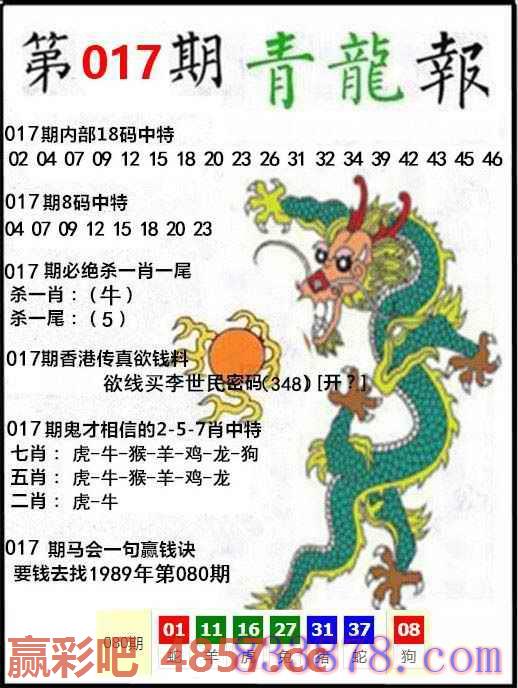 第017期青龍報
017期内部18码中特
02 04 07 09 12 15 18 20 23 26 31 32 34 39 42 43 45 46
017期8码中特
04 07 09 12 15 18 20 23
017期必绝杀一肖一尾
杀一肖：（牛）
杀一尾：（5）
017期香港传真欲钱料
欲线买李世民密码(348) [开？]
017期鬼才相信的2-5-7肖中特
七肖：虎-牛-猴-羊-鸡-龙-狗
五肖：虎-牛-猴-羊-鸡-龙
二肖：虎-牛
017期马会一句赢钱诀
要钱去找1989年第080期
080期 01 11 16 27 31 37 08
蛇 羊 虎 兔 猪 蛇 狗
赢彩吧